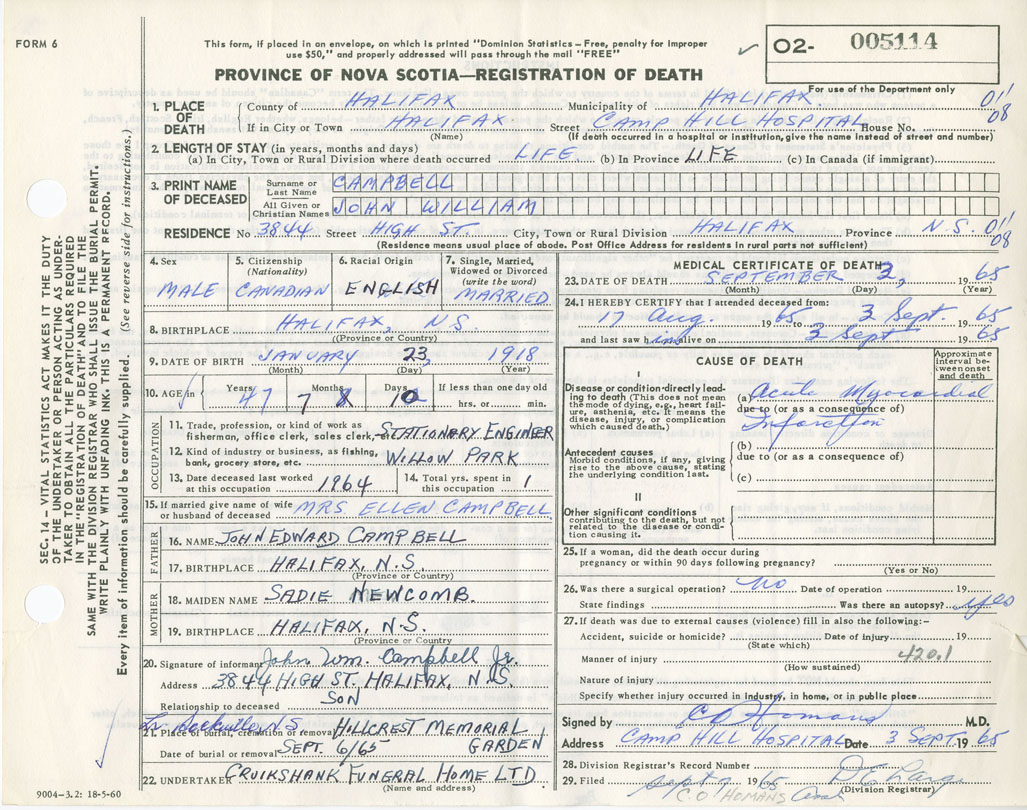 FORM 6
This form, if placed in an envelope, on which is printed "Dominion Statistics – Free, penalty for improper
use $50," and properly addressed will pass through the mail "FREE"
PROVINCE OF NOVA SCOTIA—REGISTRATION OF DEATH
02- 005114
For use of the Department only
1. PLACE OF DEATH
County of HALIFAX Municipality of HALIFAX.
If in City or Town HALIFAX Street CAMP HILL HOSPITAL House No.
(Name) (If death occurred in a hospital or institution, give the name instead of street and number)
011
08
2. LENGTH OF STAY (in years, months and days)
(a) In City, Town or Rural Division where death occurred LIFE (b) In Province LIFE (c) In Canada (if immigrant)
3. PRINT NAME OF DECEASED
Surname or Last Name CAMPBELL
All Given or Christian Names JOHN WILLIAM
RESIDENCE No 3844 Street HIGH ST. City, Town or Rural Division HALIFAX Province N.S. 011
08
(Residence means usual place of abode. Post Office Address for residents in rural parts not sufficient)
4. Sex
MALE
5. Citizenship
(Nationality)
CANADIAN
6. Racial Origin
ENGLISH
7. Single, Married,
Widowed or Divorced
(write the word)
MARRIED
8. BIRTHPLACE HALIFAX, N.S.
(Province or Country)
9. DATE OF BIRTH JANUARY 23, 1918
(Month) (Day) (Year)
10. AGE in Years 47 Months 7 Days 10 If less than one day old
hrs. or min.
OCCUPATION
11. Trade, profession, or kind of work as
fisherman, office clerk, sales clerk, STATIONARY ENGINEER
12. Kind of industry or business, as fishing,
bank, grocery store, etc. WILLOW PARK
13. Date deceased last worked
at this occupation 1964
14. Total yrs. spent in
this occupation 1
15. If married give name of wife
or husband of deceased MRS ELLEN CAMPBELL
FATHER
16. NAME JOHN EDWARD CAMPBELL
17. BIRTHPLACE HALIFAX, N.S.
(Province or Country)
MOTHER
18. MAIDEN NAME SADIE NEWCOMB.
19. BIRTHPLACE HALIFAX, N.S.
(Province or Country
20. Signature of informant John Wm. Campbell Jr.
Address 3844 HIGH ST. HALIFAX, N.S.
Relationship to deceased SON
Sackville, N.S
21. Place of burial, cremation or removal HILLCREST MEMORIAL
GARDEN
Date of burial or removal SEPT. 6/65
22. UNDERTAKER CRUIKSHANK FUNERAL HOME LTD.
(Name and address)
MEDICAL CERTIFICATE OF DEATH
23. DATE OF DEATH SEPTEMBER 2, 1965
(Month) (Day) (Year)
24. I HEREBY CERTIFY that I attended deceased from:
17 Aug. 1965 to 3 Sept 1965
and last saw h alive on 2 Sept 1965
CAUSE OF DEATH
Approximate
interval be-
tween onset
and death
I
Disease or condition directly lead-
ing to death (This does not mean
the mode of dying, e.g., heart fail-
ure, asthenia, etc. It means the
disease, injury, or complication
which caused death.)
(a) Acute Myocardial
due to (or as a consequence of)
Infarction
(b)
due to (or as a consequence of)
(c)
Antecedent causes
Morbid conditions, if any, giving
rise to the above cause, stating
the underlying condition last.
II
Other significant conditions
contributing to the death, but not
related to the disease or condi-
tion causing it.
25. If a woman, did the death occur during
pregnancy or within 90 days following pregnancy?
(Yes or No)
26. Was there a surgical operation? No Date of operation 19
State findings Was there an autopsy? yes
27. If death was due to external causes (violence) fill in also the following:–
Accident, suicide or homicide? Date of injury 19
(State which)
Manner of injury 420.1
(How sustained)
Nature of injury
Specify whether injury occurred in industry, in home, or in public place
Signed by C O Homans M.D.
Address CAMP HILL HOSPITAL Date 3 SEPT. 1965
28. Division Registrar's Record Number
29. Filed Sept 9 1965
(Division Registrar)
C.O HOMANS
SEC. 14 – VITAL STATISTICS ACT MAKES IT THE DUTY
OF THE UNDERTAKER OR PERSON ACTING AS UNDER-
TAKER TO OBTAIN ALL THE PARTICULARS REQUIRED
IN THE "REGISTRATION OF DEATH" AND TO FILE THE
SAME WITH THE DIVISION REGISTRAR WHO SHALL ISSUE THE BURIAL PERMIT.
WRITE PLAINLY WITH UNFADING INK. THIS IS A PERMANENT RECORD.
Every item of information should be carefully supplied. (See reverse side for instructions.)
9004–3.2: 18-5-60